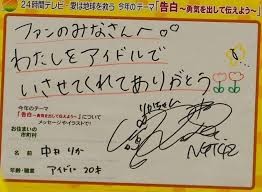 24時間テレビ・愛は地球を救う 今年のテーマ「告白～勇気を出して伝えよう～」
ファンのみなさんへ
わたしをアイドルで
いさせてくれてありがとう
りかちゃん
NGT48
今年のテーマ
「告白～勇気を出して伝えよう～」について
メッセージやイラストで!
お住まいの
市町村
名前 中井りか
年齢・職業 アイドル 20才